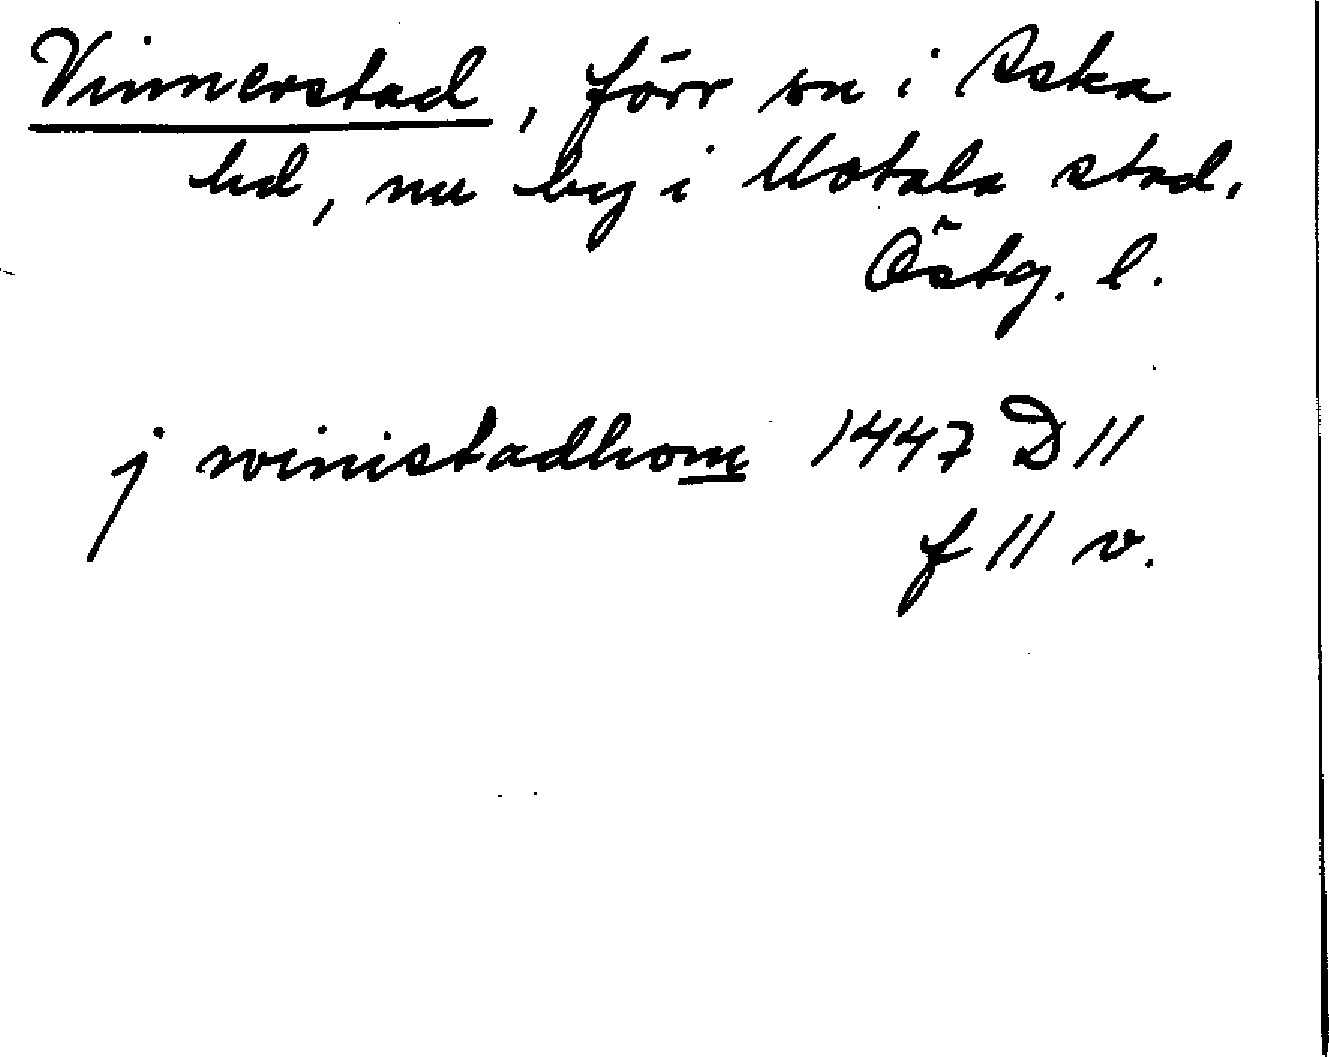 Vinnerstad, förr sn i Aska
hd, nu by i Motala stad,
Östg. l.
j winistadhom 1447 D 11
f 11 v.